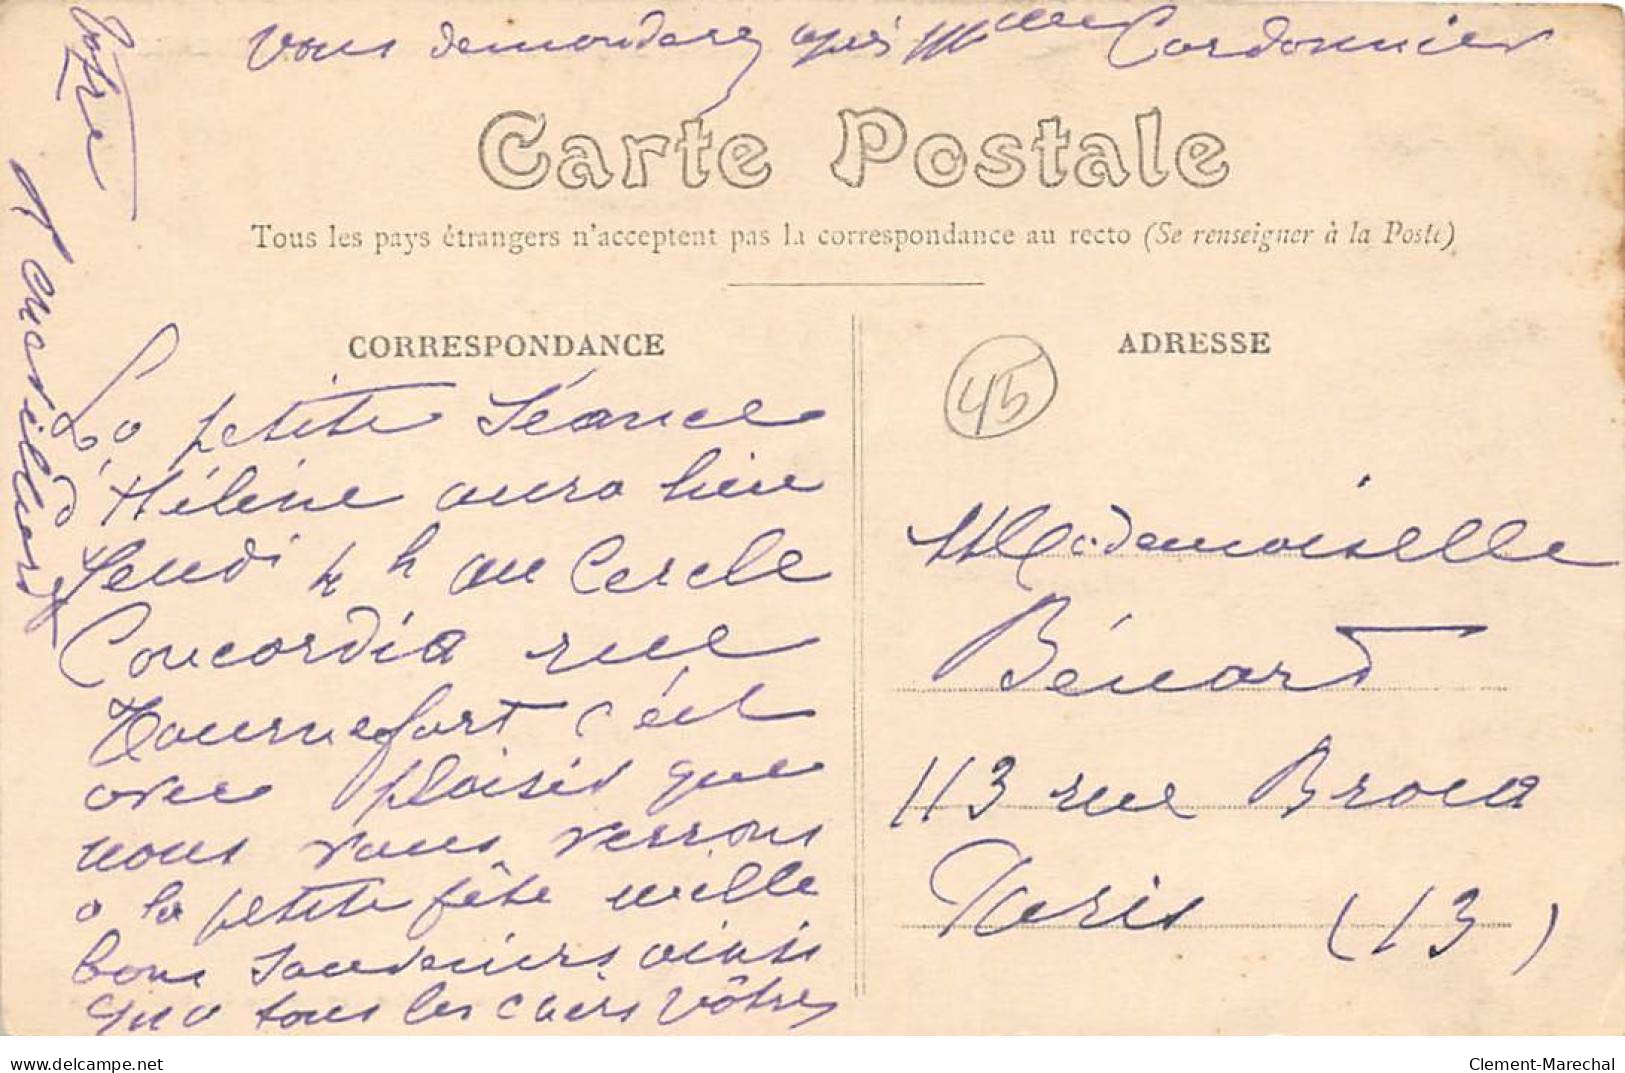 Vous demanderez après Mme Cordonnier
Carte Postale
Tous les pays étrangers n'acceptent pas la correspondance au recto (Se renseigner à la Poste)
CORRESPONDANCE
La petite Séance
Hélène aura lieu
Jeudi 4 h au Cercle
Concordia rue
Tournefort c'est
avec plaisir que
nous vous verrons
à la petite fête mille
bons souvenirs ainsi
qu'a tous les chers vôtres
Votre
ADRESSE
45
Mademoiselle
Bénard
113 rue Broca
Paris (13)
delcampe.net
Clement-Marechal